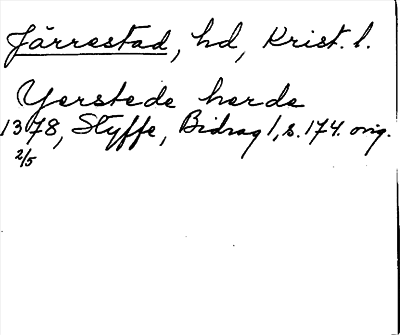 Järrestad, hd, Krist. l.
Yerstede herde
1378, Styffe, Bidrag 1, s. 174. orig.
2/5